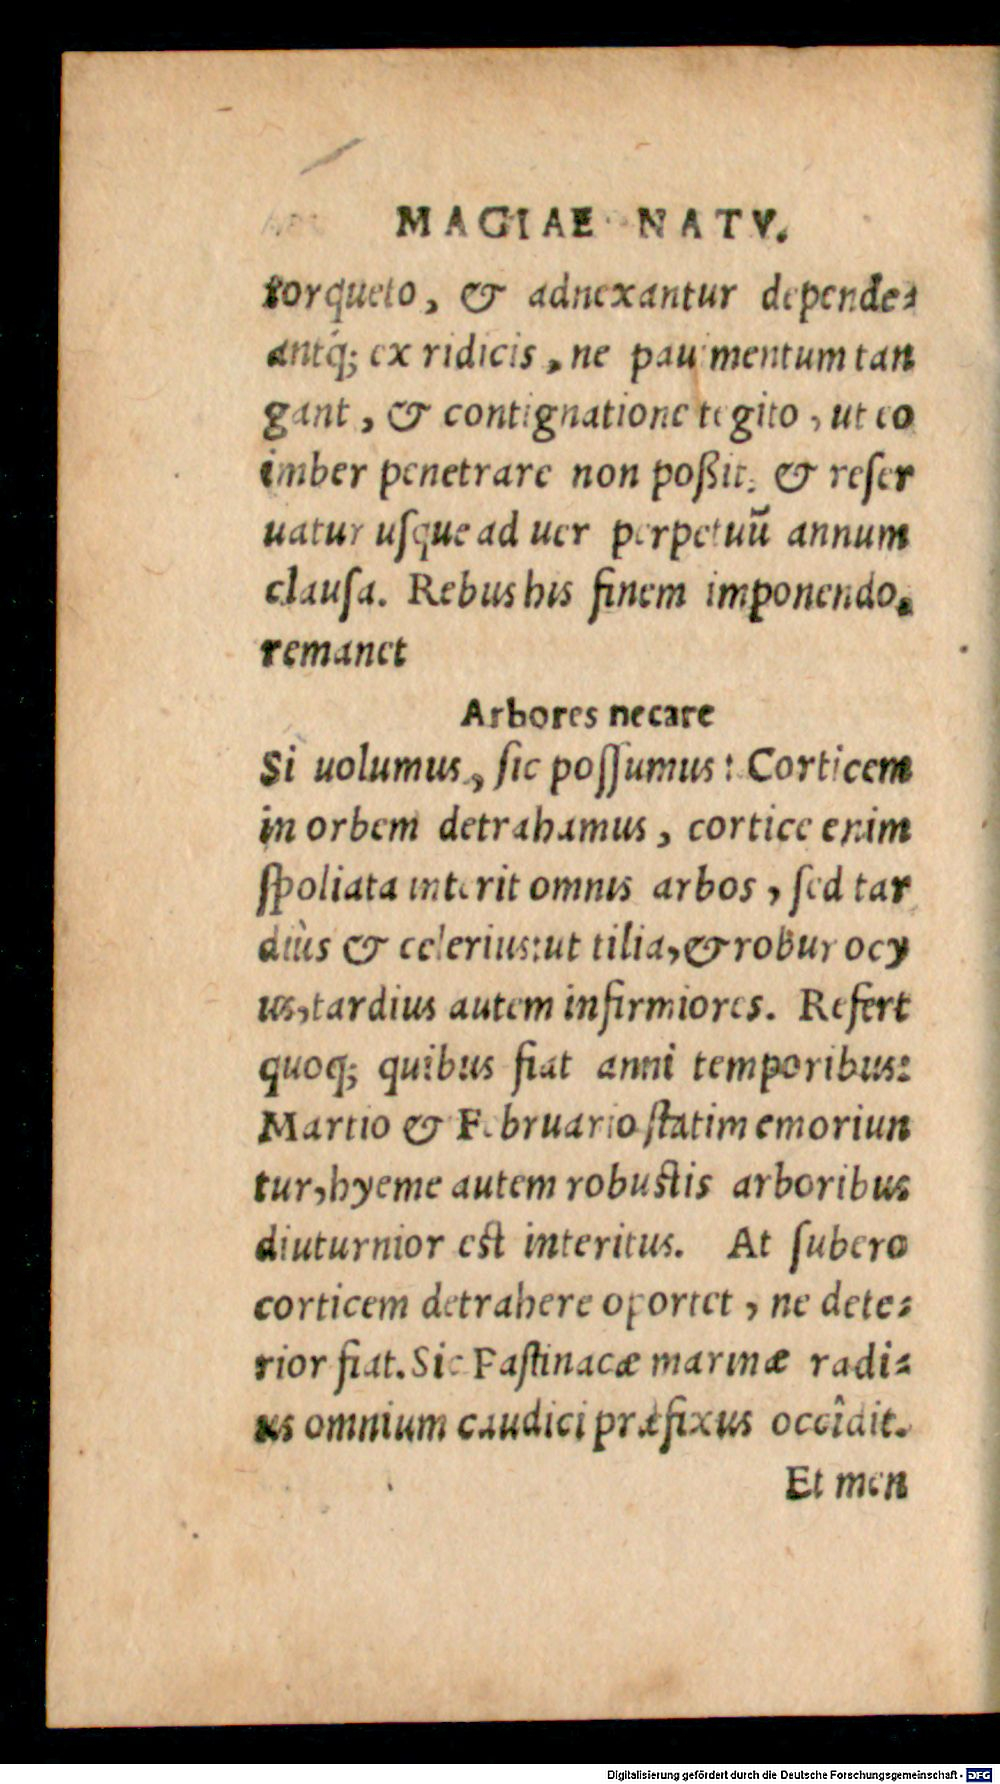 MAGIAE NATV.
torqueto, & adnexantur depende⸗
antq́; ex ridicis, ne pauimentum tan
gant, & contignatione tegito, ut eo
imber penetrare non poßit. & reſer
uatur uſque ad uer perpetuū annum
clauſa. Rebus his finem imponendo.
remanet
Arbores necare
Si uolumus, ſic poſſumus: Corticem
in orbem detrahamus, cortice enim
ſpoliata interit omnis arbos, ſed tar
diùs & celerius: ut tilia, & robur ocy
us, tardius autem infirmiores. Refert
quoq; quibus fiat anni temporibus:
Martio & Februario ſtatim emoriun
tur, hyeme autem robustis arboribus
diuturnior est interitus. At ſubero
corticem detrahere oportet, ne dete⸗
rior fiat. Sic Paſtinacæ marinæ radi⸗
us omnium caudici præfixus occîdit.
Et men
Digitalisierung gefördert durch die Deutsche Forschungsgemeinschaft - DFG